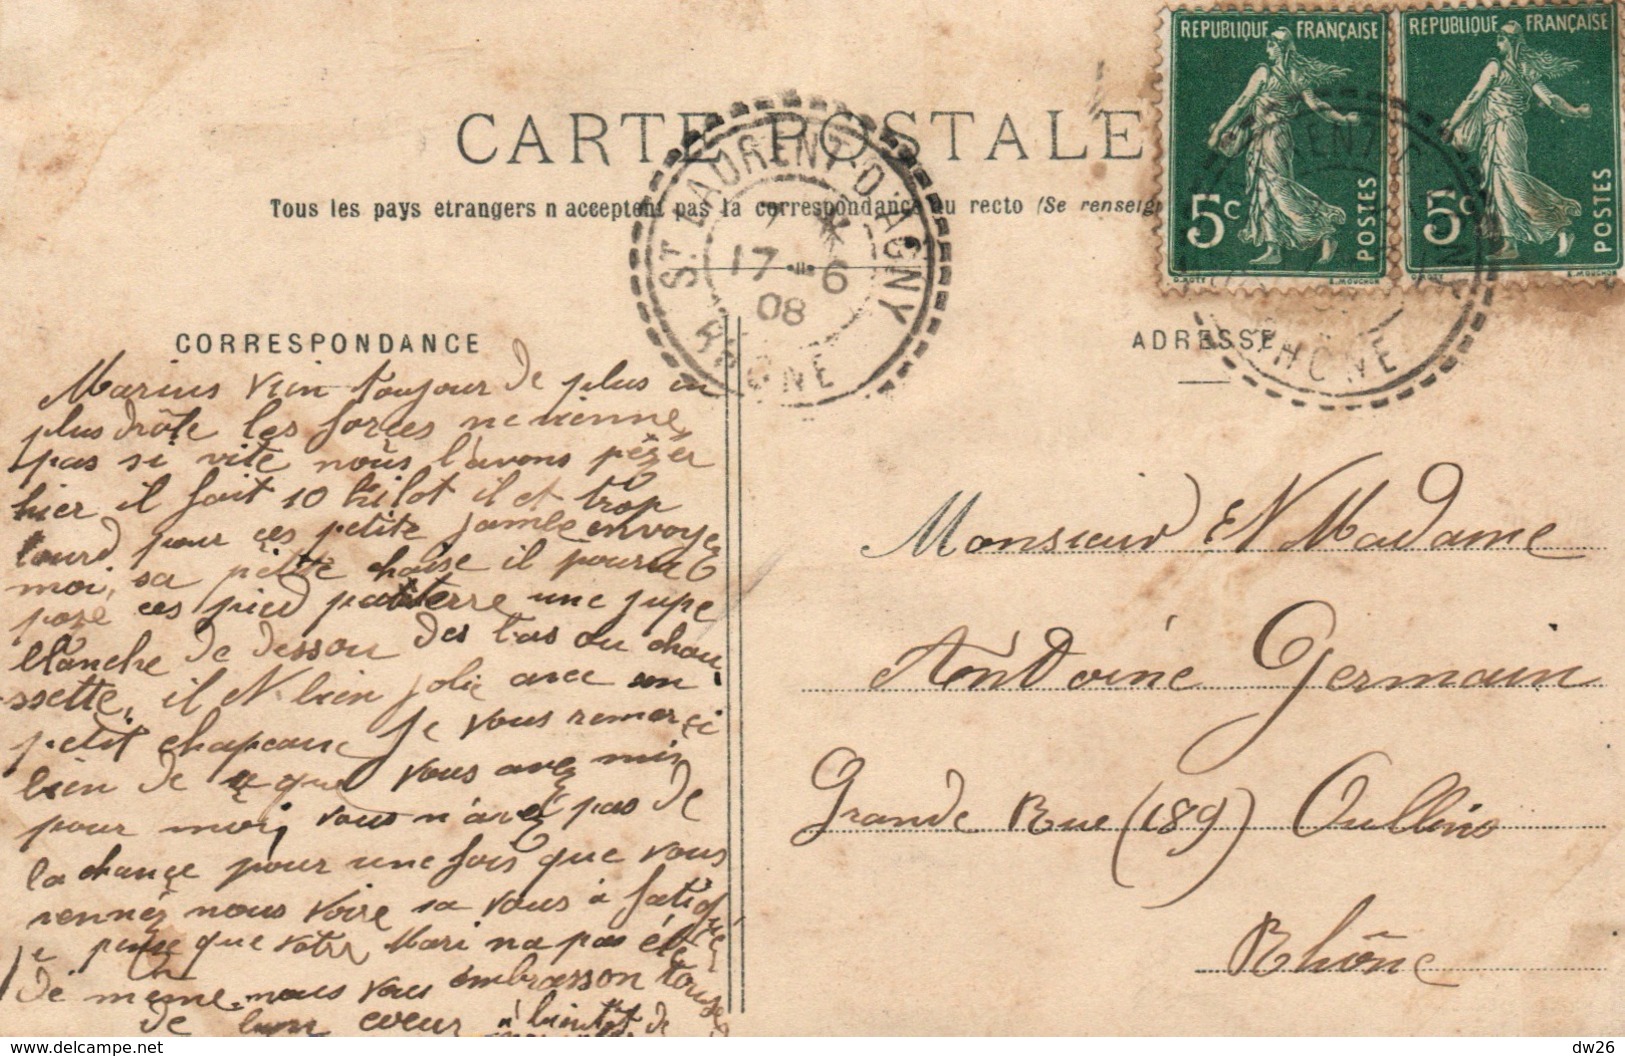 REPUBLIQUE FRANÇAISE
REPUBLIQUE FRANÇAISE
5c
POSTES
5c
POSTES
O.ROTY
E.MOUCHON
E.MOUCHON
CARTE POSTALE
Tous les pays etrangers n acceptent pas la correspondance au recto (Se renseig
ST LAURENT-D'AGNY
17 - 6
08
RHONE
CORRESPONDANCE
ADRESSE
Marius vien toujour de plus en
plus drôle les forces ne vienne
pas si vite nous l'avons pézér
hier il fait 10 kilot il et trop
lourd pour ces petite jambe envoye
moi, sa petite chaise il pourra
posé ces pied patiterre une jupe
blanche de dessou des bas ou chau
ssette, il et bien jolie avec un
petit chapeau je vous remerçi
bien de que vous avez mis
pour moi, vous n'avez pas de
la chançe pour une fois que vous
vennéz nous voire sa vous à fatigué
je pense que votre Mari na pas été
de même nous vous embrasson tous
de bon coeur à bientot de
Monsieur et Madame
Antoine Germain
Grande Rue (189) Oullins
Rhône
delcampe.net
dw26